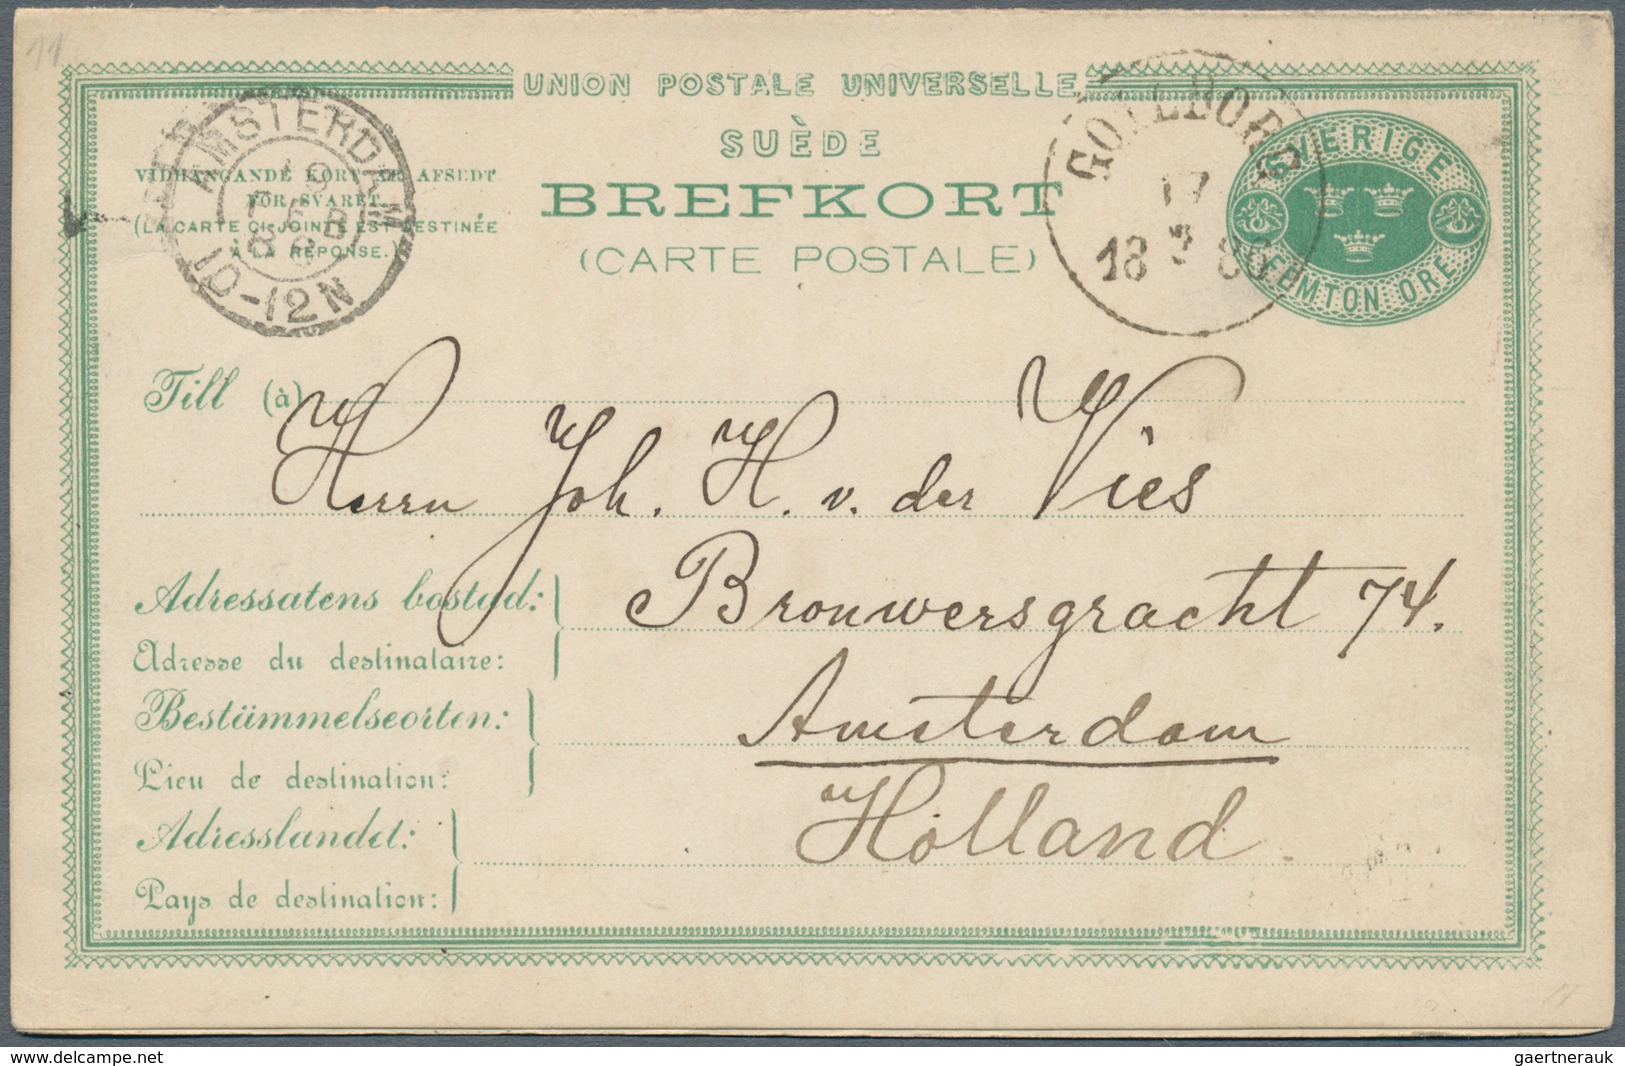 11
UNION POSTALE UNIVERSELLE
SUÈDE
BREFKORT
(CARTE POSTALE)
VIDHÄNGANDE KORT ÄR AFSEDT
FÖR SVARET
(LA CARTE CI-JOINTE EST DESTINÉE
À LA RÉPONSE.)
AMSTERDAM
19
FEB
10-12N
GÖTEBORG
17
18 2 86
SVERIGE
FEMTON ÖRE
Till (à)
Herrn Joh. H. v. der Vies
Adressatens bostad:
Adresse du destinataire:
Brouwersgracht 74.
Bestämmelseorten:
Lieu de destination:
Amsterdam
Adresslandet:
Pays de destination:
Holland.
www.delcampe.net
gaertnerauk